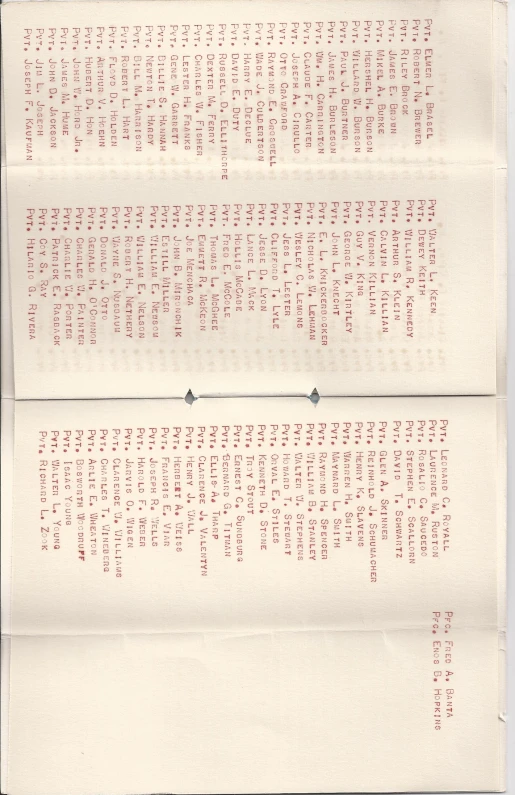 Pvt. Elmer L. Brasel
Pvt. Robert N. Brewer
Pvt. Riley Brock
Pvt. James E. Brown
Pvt. Mikel A. Burke
Pvt. Hershel H. Burson
Pvt. Willard W. Burson
Pvt. Paul J. Burtner
Pvt. James H. Burleson
Pvt. Wm. H. Carrington
Pvt. Claude F. Carter
Pvt. Joseph A. Cirullo
Pvt. Otto Crawford
Pvt. Raymond E. Croskell
Pvt. Wade J. Culbertson
Pvt. Harry E. Decloe
Pvt. David E. Duty
Pvt. Russell D. Dellithorpe
Pvt. Dexter M. Ferry
Pvt. Charles W. Fisher
Pvt. Lester H. Franks
Pvt. Gene W. Garnett
Pvt. Billie S. Hannah
Pvt. Newton T. Hardy
Pvt. Bill M. Harrison
Pvt. Robert L. Hart
Pvt. Floyd D. Holden
Pvt. Arthur V. Hoehn
Pvt. Hubert D. Hon
Pvt. John W. Hord Jr.
Pvt. James M. Hume
Pvt. John D. Jackson
Pvt. Jim L. Joseph
Pvt. Joseph F. Kaufman
Pvt. Walter L. Keen
Pvt. Dewey Keith
Pvt. William R. Kennedy
Pvt. Arthur S. Klein
Pvt. Calvin L. Killian
Pvt. Vernon Killian
Pvt. Guy V. King
Pvt. George W. Kintley
Pvt. John L. Knecht
Pvt. E. H. Knickerbocker
Pvt. Nicholas W. Lehman
Pvt. Wesley C. Lemons
Pvt. Jess L. Lester
Pvt. Clifford T. Lyle
Pvt. Jesse D. Lyon
Pvt. Lance L. Mack
Pvt. Hollis McCabe
Pvt. Fred E. McCole
Pvt. Thomas L. McGhee
Pvt. Emmett R. McKeon
Pvt. Joe Menchaca
Pvt. John B. Mironchik
Pvt. Estill Miller
Pvt. William J. Nesbom
Pvt. Wilmer E. Nelson
Pvt. Robert H. Nethery
Pvt. Wayne S. Nusbaum
Pvt. Donald J. Otto
Pvt. Gerald H. O'Connor
Pvt. Charles W. Painter
Pvt. Charlie F. Porter
Pvt. Patrick E. Raeback
Pvt. Coy S. Ray
Pvt. Hilario G. Rivera
Pvt. Leonard C. Royall
Pvt. Laurence M. Ruston
Pvt. Rosalio C. Saucedo
Pvt. Stephen E. Scallorn
Pvt. David T. Schwartz
Pvt. Glen A. Skinner
Pvt. Reinhold J. Schumacher
Pvt. Henry K. Slavens
Pvt. Warren H. Smith
Pvt. Maynard J. Smith
Pvt. Raymond H. Spencer
Pvt. William B. Stanley
Pvt. Walter W. Stephens
Pvt. Howard T. Stewart
Pvt. Orval E. Stiles
Pvt. Kenneth D. Stone
Pvt. Troy Stout
Pvt. Ernest C. Sundburg
Pvt. Bernard G. Titman
Pvt. Ellis A. Tharp
Pvt. Clarence J. Valentyn
Pvt. Henry J. Wall
Pvt. Herbert A. Weiss
Pvt. Francis E. Wiar
Pvt. Joseph R. Wells
Pvt. Harold F. Weber
Pvt. Jarvis O. Wigen
Pvt. Clarence W. Williams
Pvt. Charles T. Wineberg
Pvt. Arlie E. Wheaton
Pvt. Bosworth Woodruff
Pvt. Isaac Young
Pvt. Walter L. Young
Pvt. Richard L. Zook
Pfc. Fred A. Banta
Pfc. Enos B. Hopkins